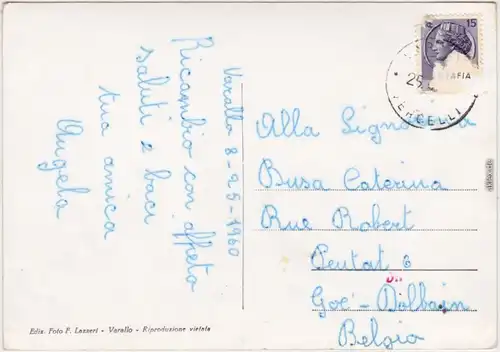 Varallo 8-25-1960
Ricambio con affeto
saluti e baci
tua amica
Angela
Alla Signorina
Busa Caterina
Rue Robert
Peutat 8
Goé-Dolhain
Belgio
15
VERCELLI
Ediz. Foto F. Lazzeri - Varallo - Riproduzione vietata